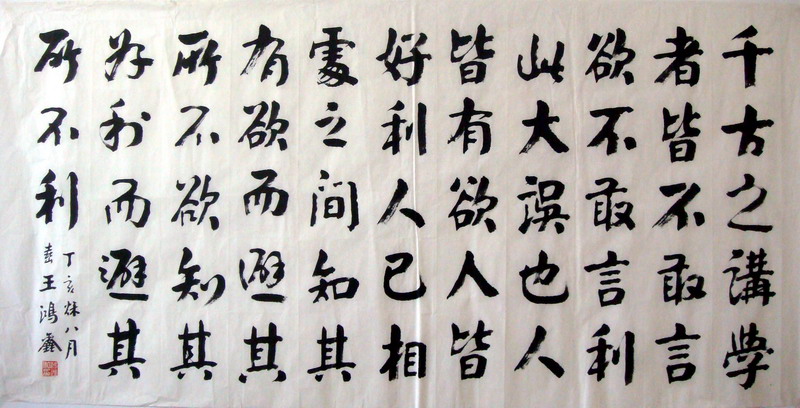 千古之講學
者皆不敢言
欲不敢言利
此大誤也人
皆有欲人皆
好利人己相
處之間知其
有欲而避其
所不欲知其
好利而避其
所不利
丁亥秋八月
王鴻